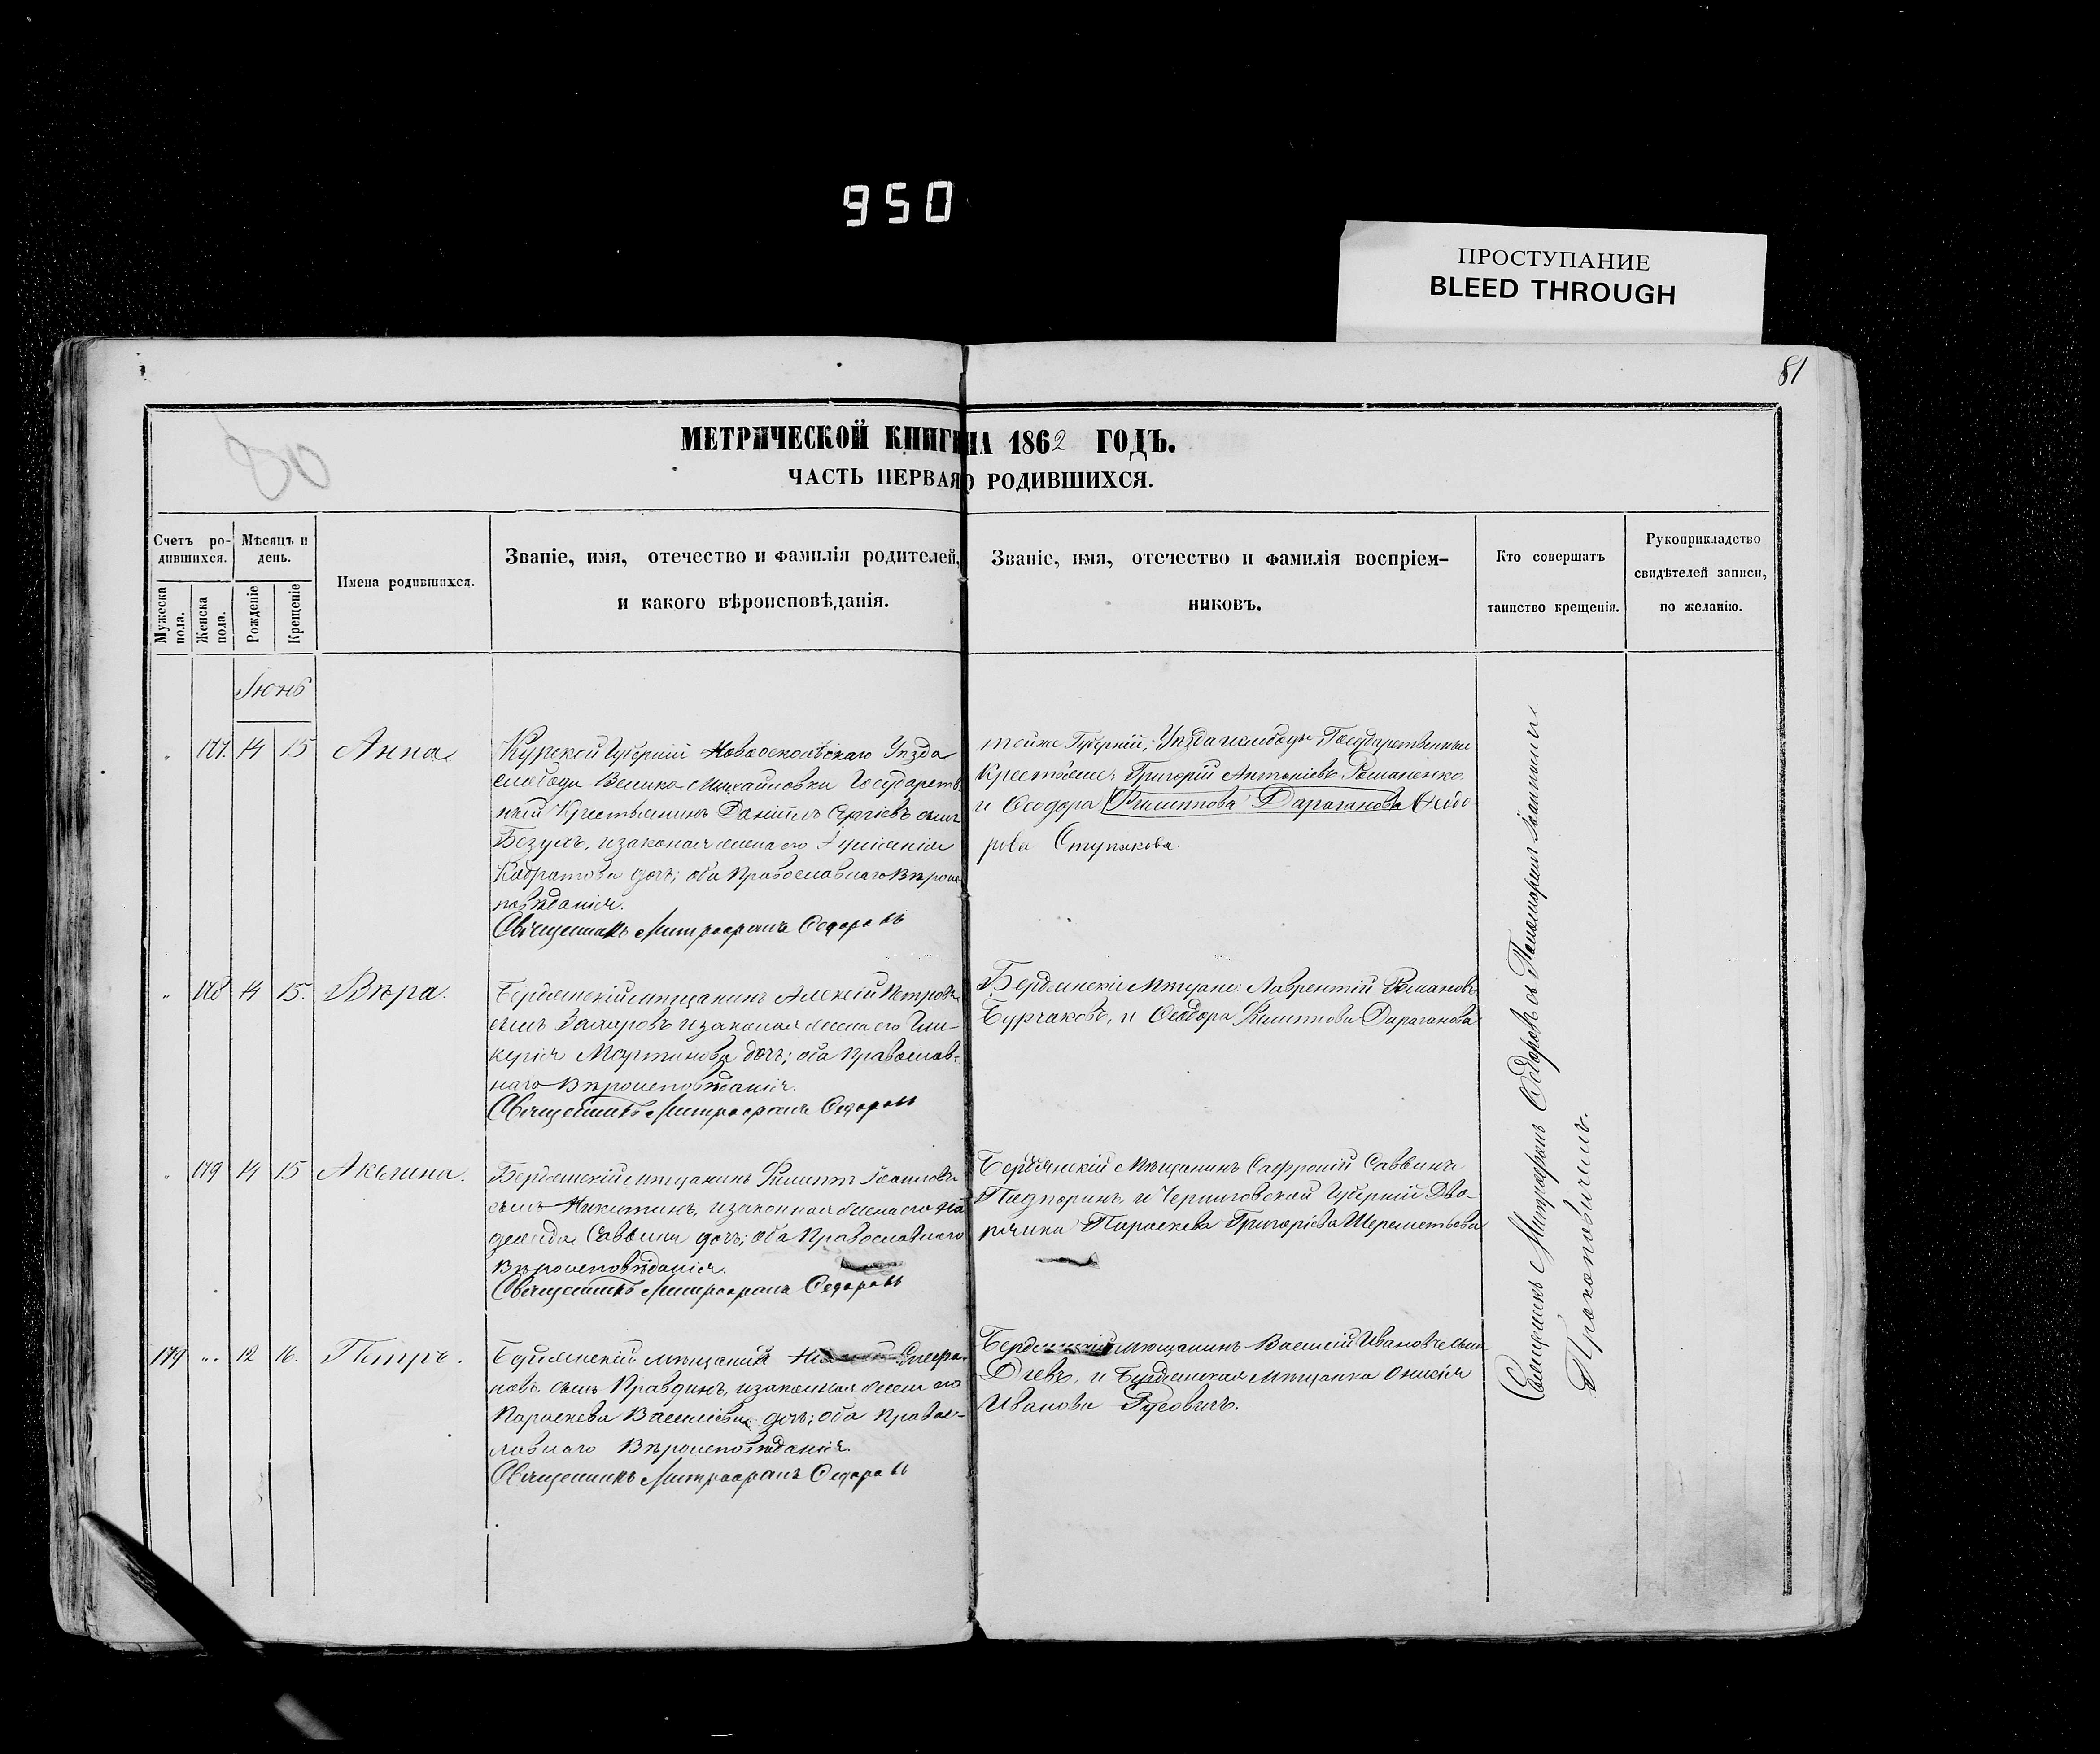 950
ПРОСТУПАНИЕ
BLEED THROUGH
81
80
МЕТРИЧЕСКОЙ КНИГИ НА 1862 ГОДЪ.
ЧАСТЬ ПЕРВАЯ О РОДИВШИХСЯ.
Счетъ ро-
дившихся.
Мужеска пола.
Женска пола.
Мѣсяцъ и
день.
Рожденіе
Крещеніе
Имена родившихся.
Званіе, имя, отечество и фамилія родителей,
и какого вѣроисповѣданія.
Званіе, имя, отечество и фамилія воспріем-
никовъ.
Кто совершатъ
таинство крещенія.
Рукоприкладство
свидѣтелей записи,
по желанію.
Іюнь
177. 14 15 Анна
Курской Губерніи Новооскольскаго Уѣзда
слободы Велико-Михайловки Государств
ный Крестьянинъ Даніилъ Сергіевъ сынъ
Безухъ, и законная жена его
дочь; оба Православнаго Вѣроис
повѣданія.
Священникъ Митрофанъ Ѳедоровъ
тойже Губерніи, Уѣзда и слободы Государственные
Крестьяне: Григорій Антоніевъ Романенко
и Ѳеодора Филиппова Дараганова Ѳеодо
рова Ступакова.
178 14 15. Вѣра.
Бердянскій мѣщанинъ Алексѣй Петровъ
сынъ Захаровъ и законная жена его Гли-
керія Мартинова дочь; оба Православ-
наго Вѣроисповѣданія.
Священникъ Митрофанъ Ѳедоровъ
Бердянскіе Мѣщане: Лаврентій Романовъ
Бурчаковъ, и Ѳеодора Филиппова Дараганова
179 14 15 Акилина.
Бердянскій мѣщанинъ Филиппъ Іоанновъ
сынъ Никитинъ, и законная жена его На
дежда Саввина дочь; оба Православнаго
Вѣроисповѣданія.
Священникъ Митрофанъ Ѳедоровъ
Бердянскій Мѣщанинъ Софроній Саввинъ
и Черниговской Губерніи Дво-
рянка Параскева Григоріева Шереметьева
179 12 16. Петръ.
Бердянскій мѣщанинъ
новъ сынъ Правдинъ, и законная жена его
Параскева Васильева дочь; оба Правос-
лавнаго Вѣроисповѣданія.
Священникъ Митрофанъ Ѳедоровъ
Бердянскій мѣщанинъ Василій Ивановъ сынъ
Діевъ, и Бердянская мѣщанка Онисія
Иванова
Священникъ Митрофанъ Ѳедоровъ съ Пономаремъ Іоанномъ
Прокоповичемъ.